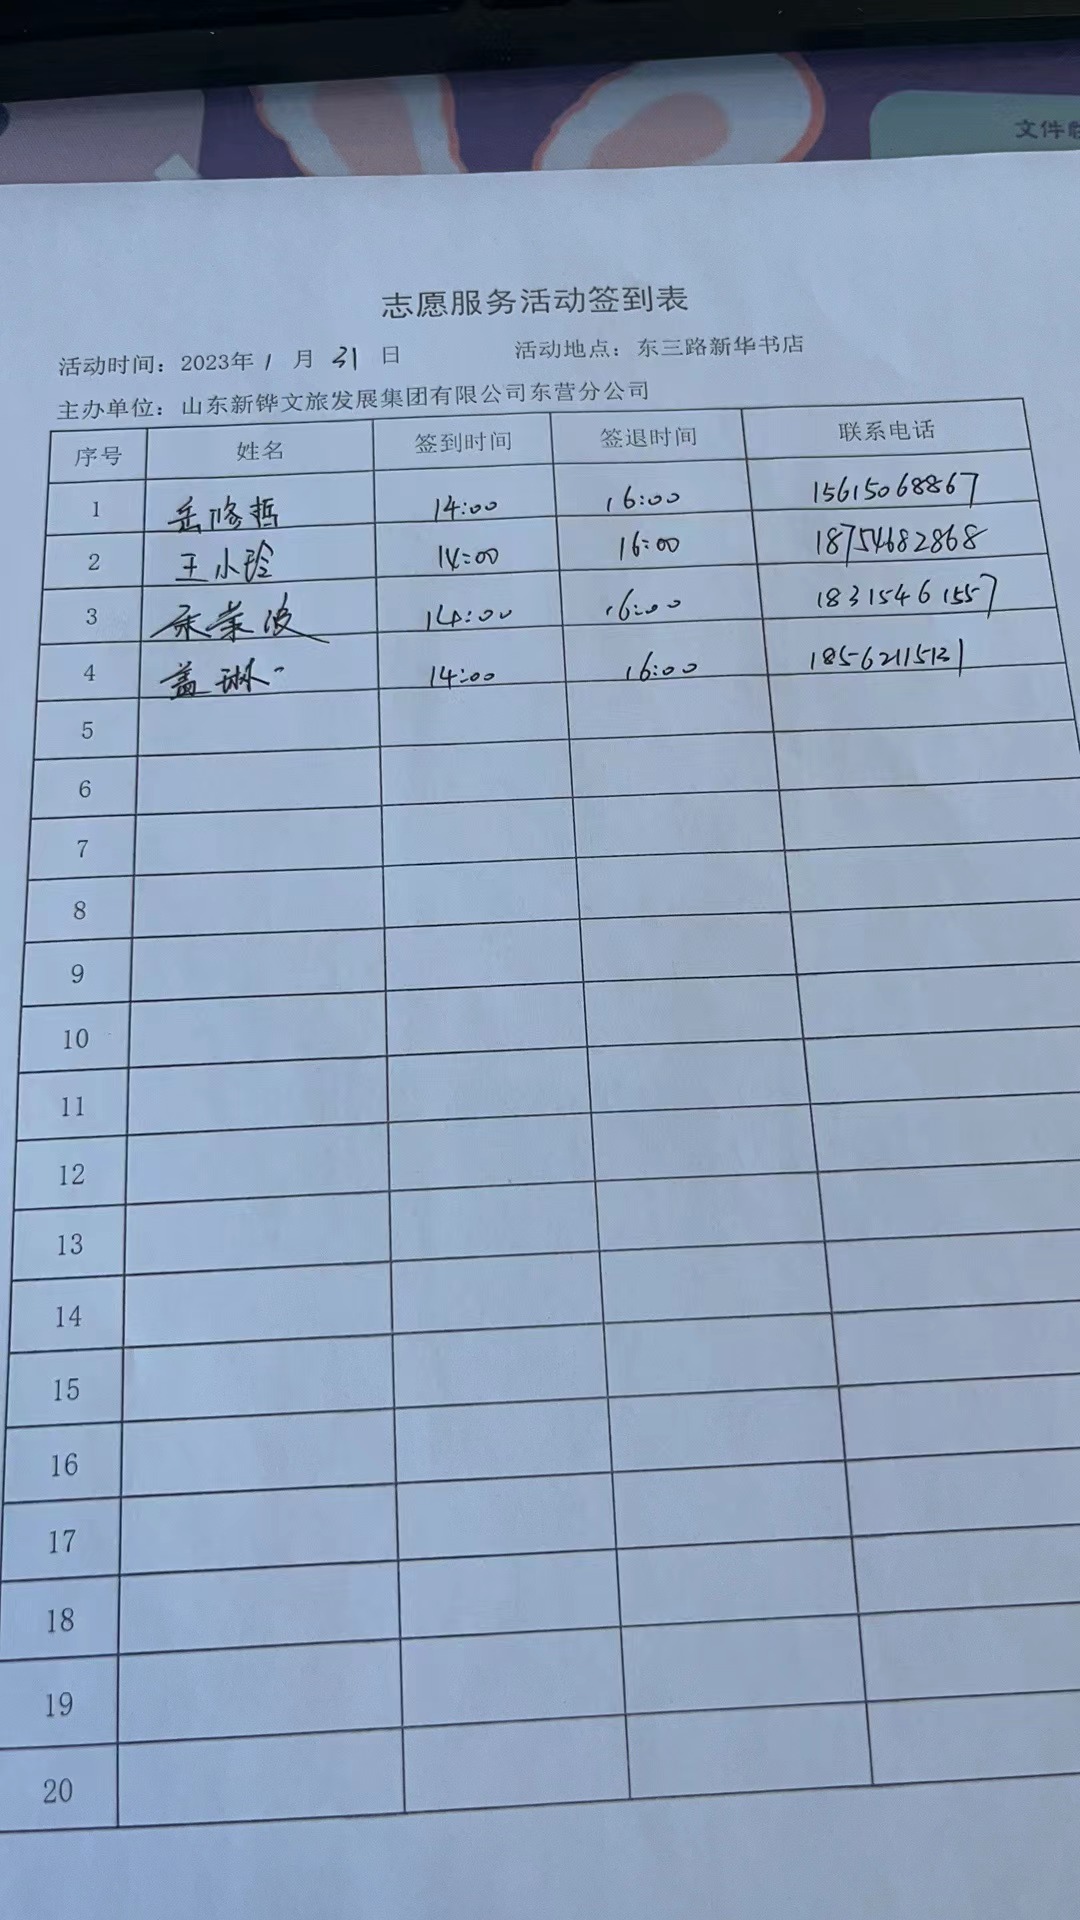 文件
志愿服务活动签到表
活动时间：2023年 1 月 31 日 活动地点：东三路新华书店
主办单位：山东新铧文旅发展集团有限公司东营分公司
序号 姓名 签到时间 签退时间 联系电话
1 岳修哲 14:00 16:00 15615068867
2 王小玲 14:00 16:00 18754682868
3 14:00 16:00 18315461557
4 盖琳 14:00 16:00 18562115131
5
6
7
8
9
10
11
12
13
14
15
16
17
18
19
20